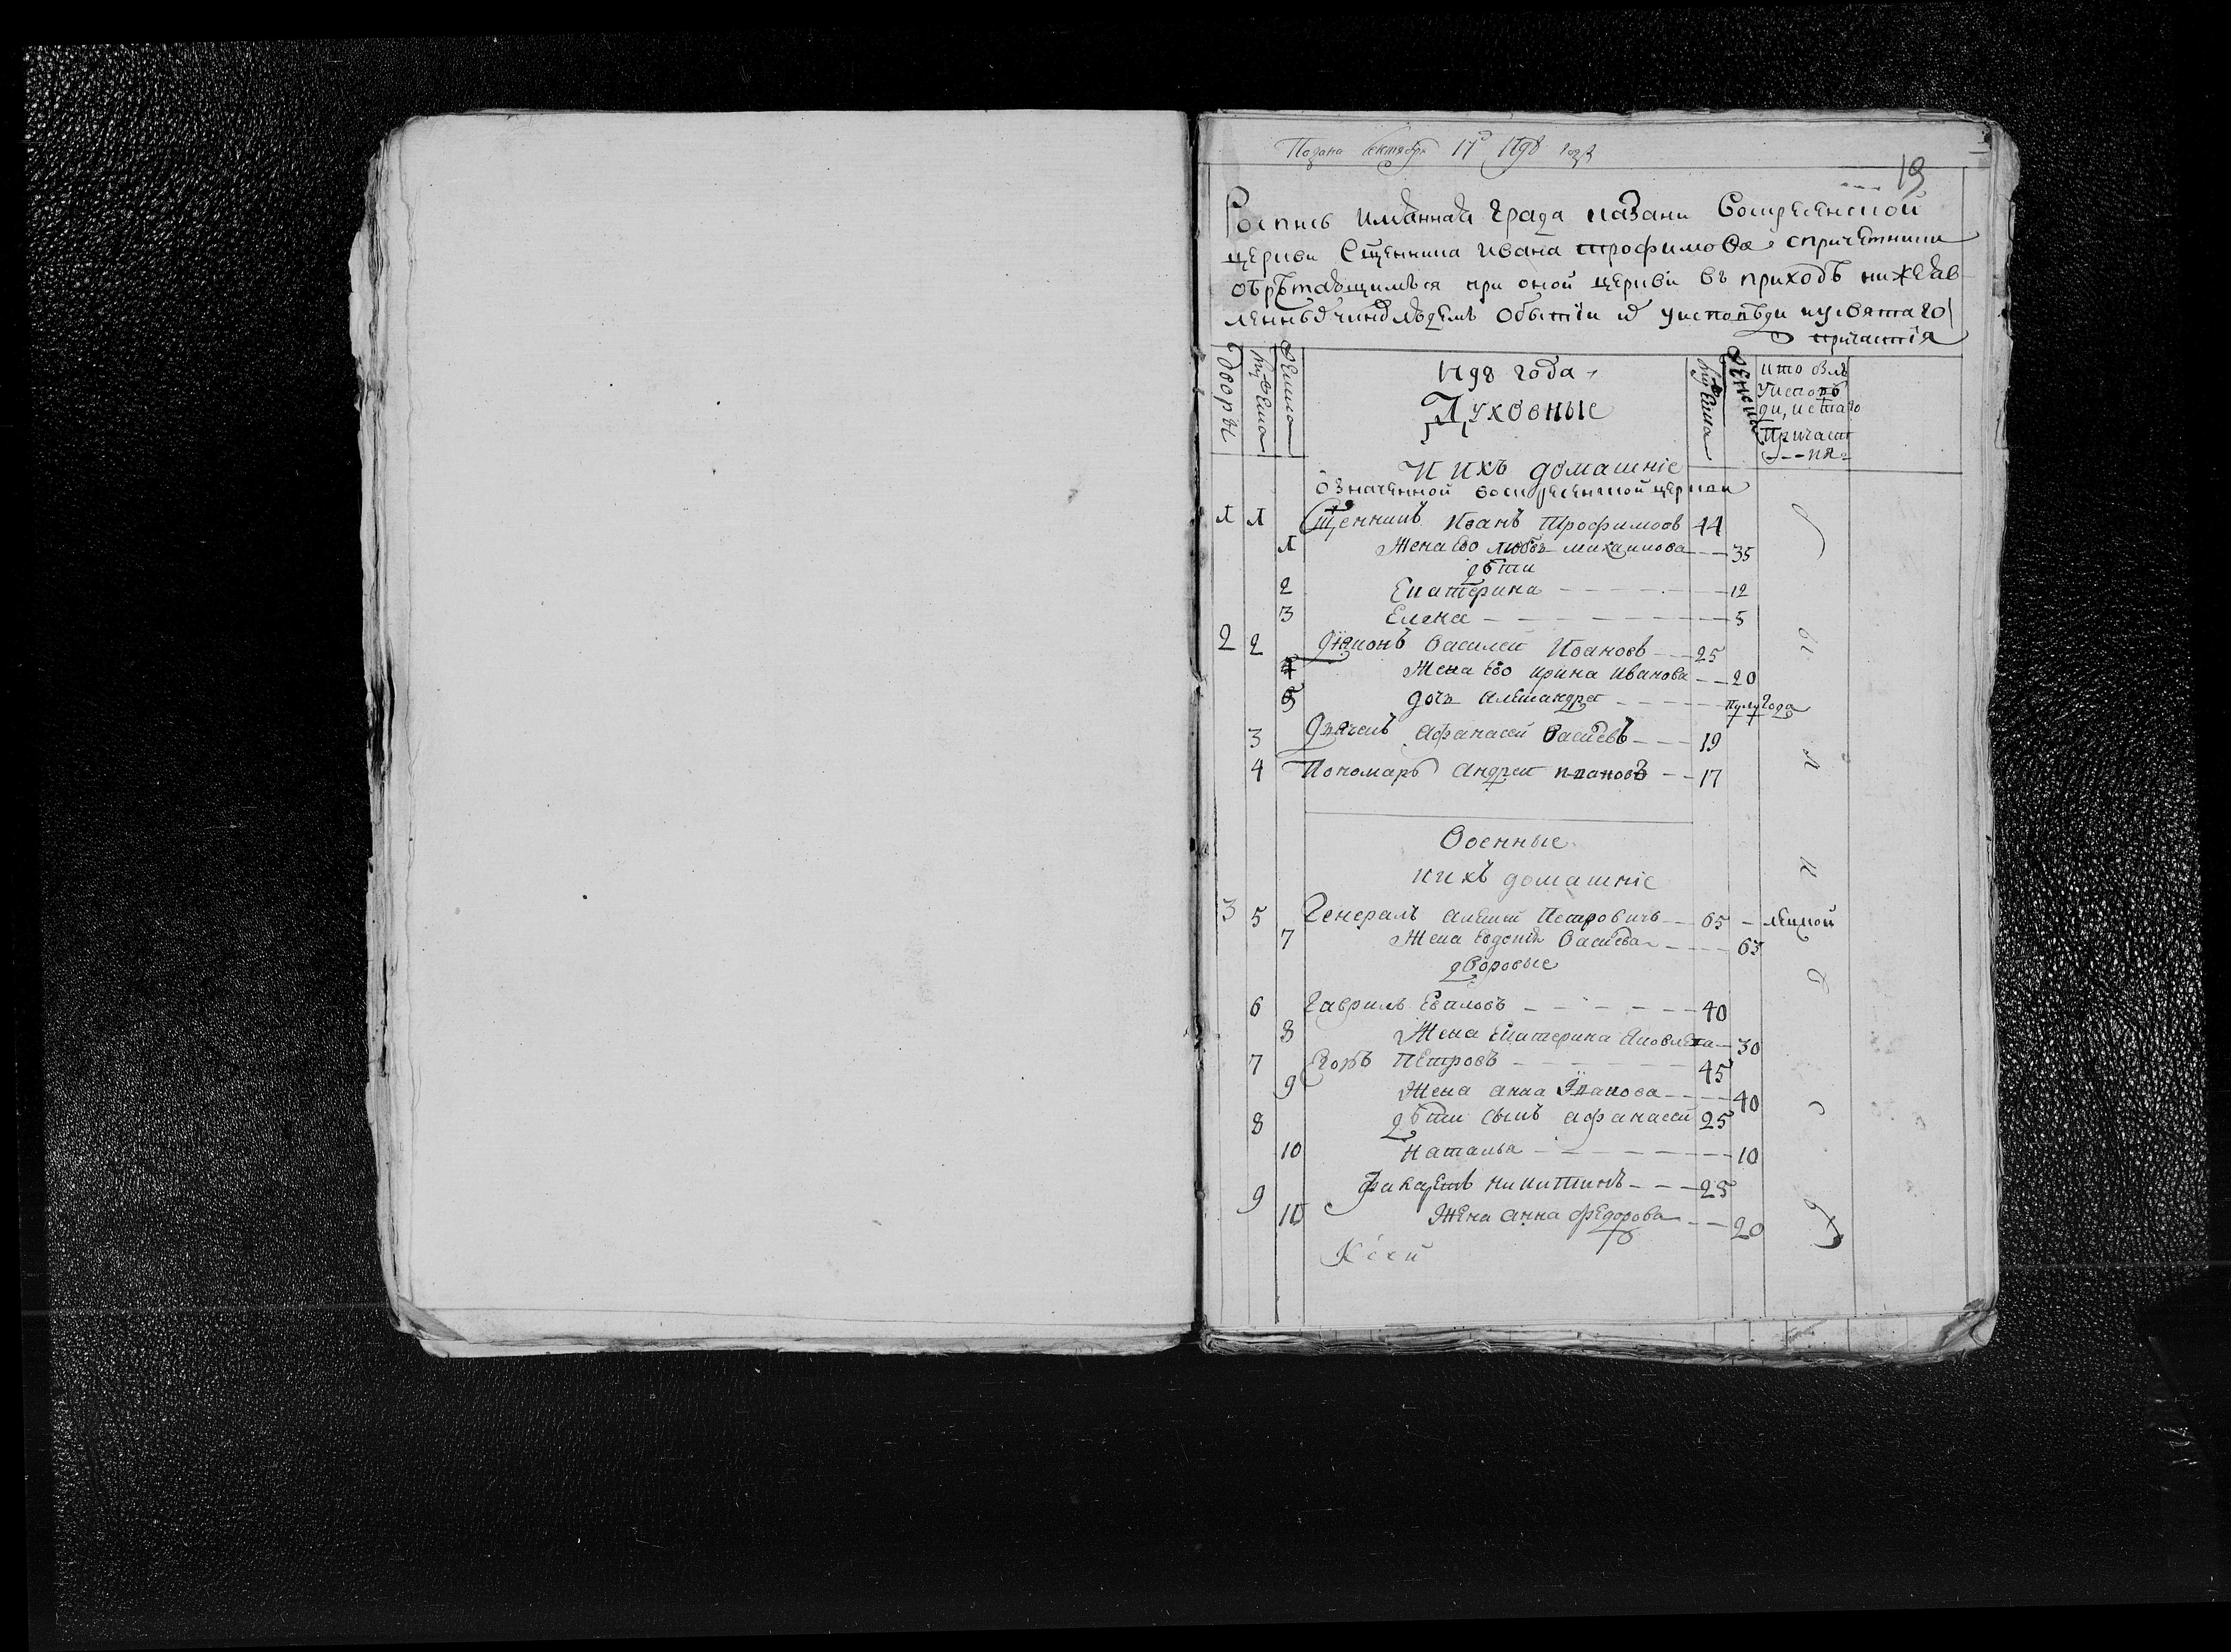 Подана Сентября 17го 1798 года
19
Роспись имянная града казани Воскресенской
церкви Сщенника Ивана трофимова спричетники
обрѣтающимъся при оной церкви въ приходѣ нижеяв
ленныхъ чиновъ людемъ обытiи ихъ уисповѣди иусвятаго
причастiя
дворы
мужеска
женска
1798 года
Духовные
мужеска
женска
кто былъ
уисповѣ
ди, истаго
Причаст
ия
И ихъ домашнiе
означенной воскресенской церкви
1 1 Сщенникъ Иванъ Трофимовъ 44
1 Жена ево любовъ михаилова 35
дѣти
2 Екатерина 12
3 Елена 5
2 2 дiаконъ Василеи Ивановъ 25
4 Жена ево ирина иванова 20
5 дочь алеѯандра полугода
3 Дьячекъ афанасеи Василевъ 19
4 Пономарь андреи ивановъ 17
Военные
иихъ домашнiе
3 5 Генералъ алеѯеи Петровичь 65 лецкой
7 Жена евдокия Василева 63
дворовые
6 Гавриль 40
8 Жена екатерина яковлева 30
7 Егоръ петровъ 45
9 Жена анна иванова 40
8 дѣти сынъ афанасеи 25
10 Наталья 10
9 никитинъ 25
11 Жена анна федорова 20